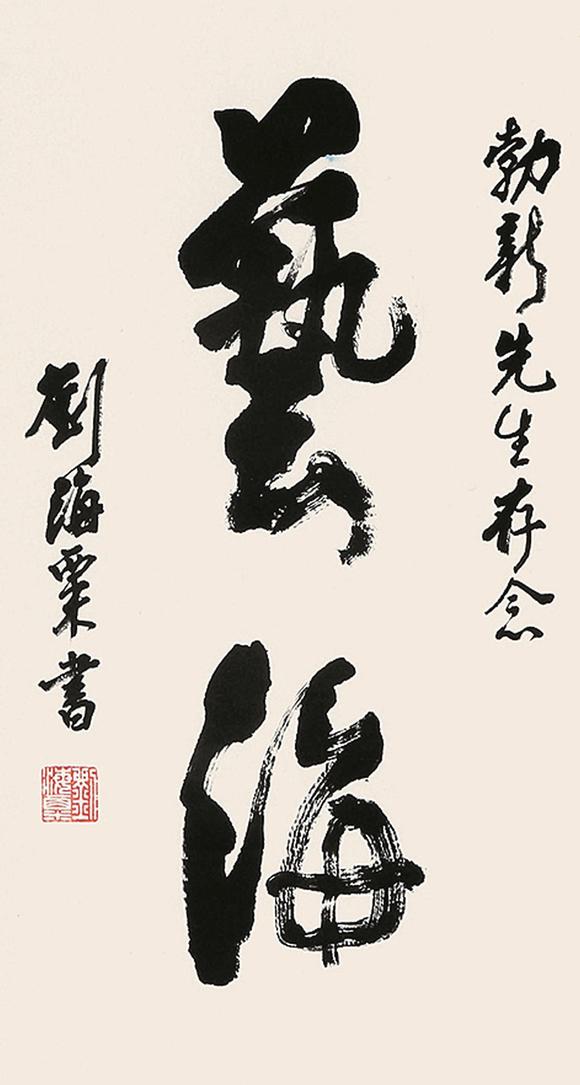 勃新先生存念
藝海
劉海粟書
劉海粟